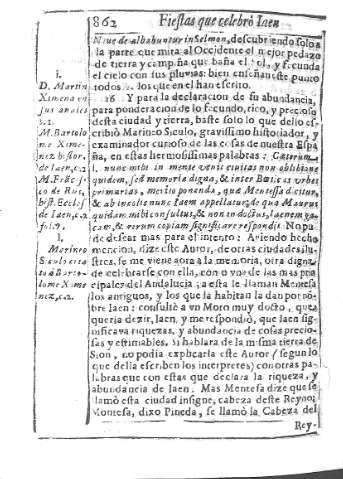 862 Fiestas que celebrò Iaen
Nieue de albahuntur in Selmon, descubriendo solo a
la parte que mira al Occidente el mejor pedazo
de tierra y campiña que baña el Sol, y fecunda
el cielo con sus pluvias: bien enseñan este punto
todos los que en el han escrito.
16 Y para la declaracion de su abundancia,
para ponderacion de lo fecundo, rico, y precioso
desta ciudad y tierra, baste solo lo que dello es-
cribiò Marineo Siculo, gravissimo historiador, y
examinador curioso de las cosas de nuestra Espa
ña, en estas hermosissimas palabras: Cæterum
nunc mihi in mentem venit civitas non obliuione
quidem, sed memoria digna, & inter Bæticæ vrbes
primarias, merito ponenda, quæ Mentessa dicitur,
& ab incolis nunc Iaem appellatur, de qua Maurus
quidam mihi consultus, & non indoctus, Iaenem ga-
zam, & rerum copiam significare respondit. No pu-
de desear mas para el intento: Aviendo hecho
mencion, dize este Autor, de otras ciudades ilu-
stres, se me viene aora à la memoria, otra digna
de celebrarse con ella, con o vna de las mas prin
cipales del Andaluzia; a esta le llaman Mentesa
los antiguos, y los que la habitan la dan por nō-
bre Iaen: consultè a vn Moro muy docto, que
queria dezir, Iaen, y me respondiò, que Iaen sig-
nificava riquezas, y abundancia de cosas precio-
sas y estimables. Si hablara de la misma tierra de
Sion, no podia explicarla este Autor (segun lo
que della escriben los interpretes) con otras pa-
labras que con estas que declara la riqueza, y
abundancia de Iaen. Mas Mentesa dize que se
llamò esta ciudad insigne, cabeza deste Reyno;
Montesa, dixo Pineda, se llamò la Cabeza del
Rey-
1.
D. Martin
Ximena en
sus anales
M. Bartolo
me Xime-
nez histor.
de Iaen, c.2
M. Frācis-
co de Rus,
hist. Eccles
de Iaen, c.2
fol. 7.
1.
Marineo
Siculo cita
do à Barto-
lome Xime
nez, c.2.